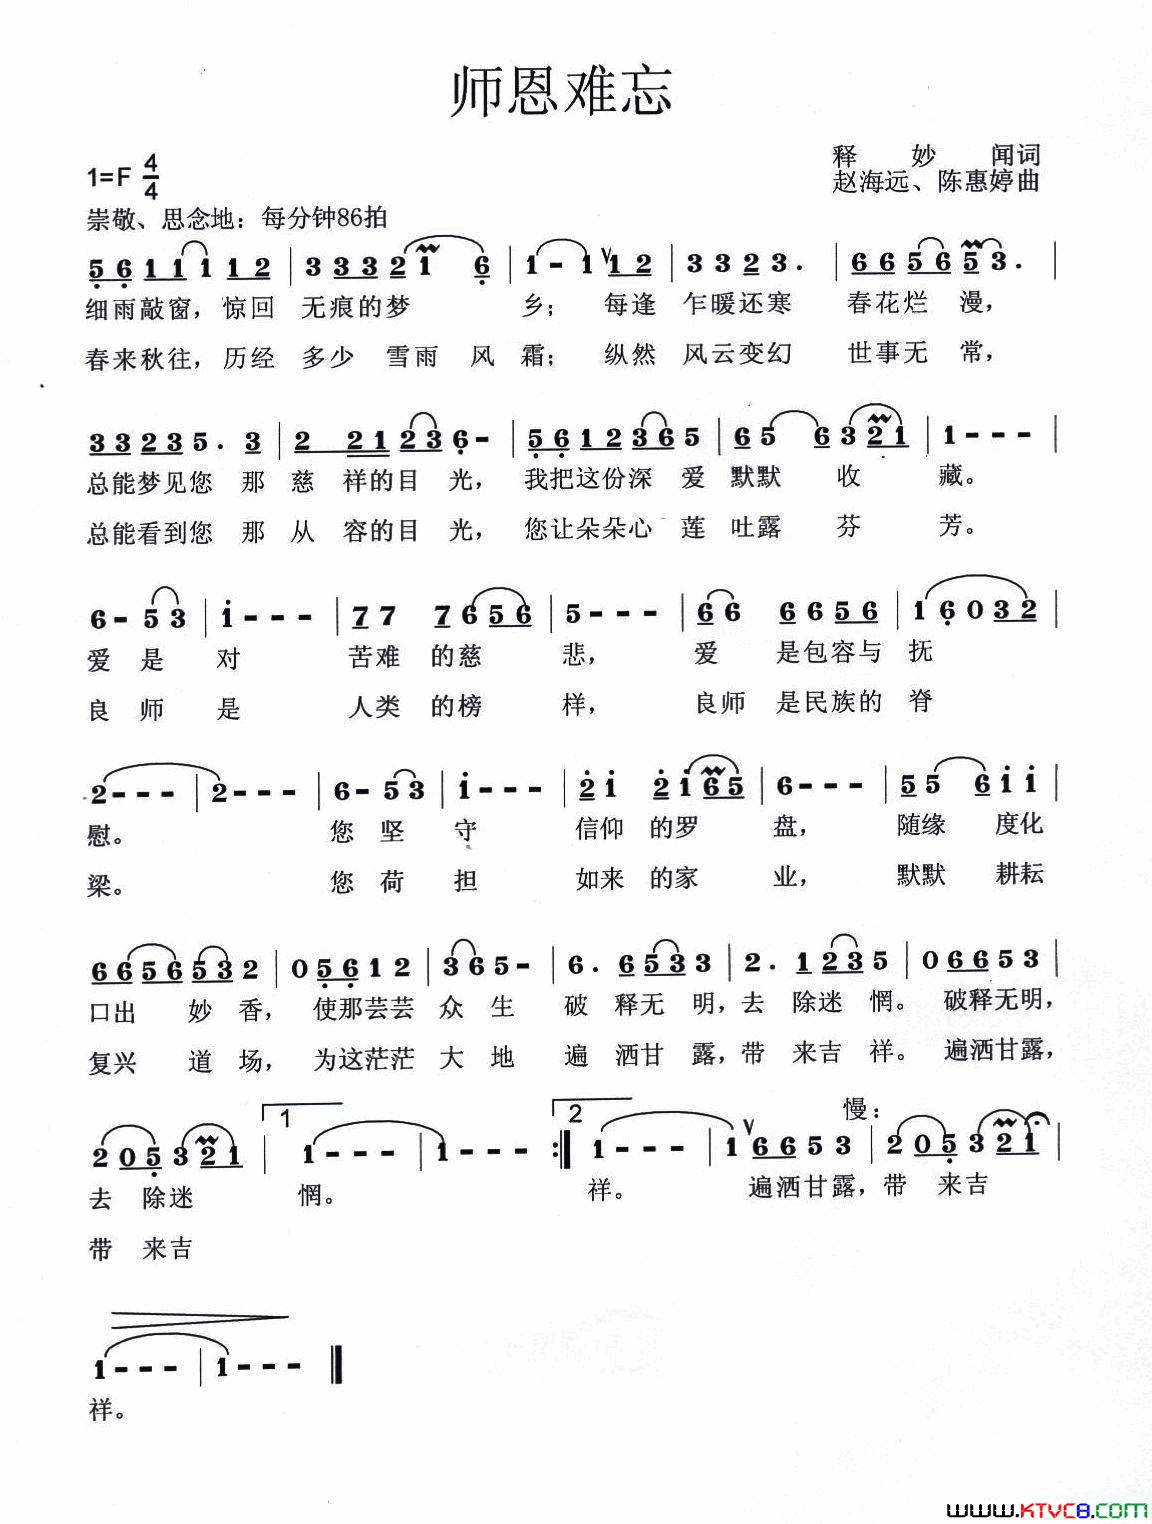 师恩难忘
释 妙 闻词
1=F 4/4
赵海远、陈惠婷曲
崇敬、思念地：每分钟86拍
5 6 1 1 1 1 2 | 3 3 3 2 1 6 | 1 - 1 1 2 | 3 3 2 3 . | 6 6 5 6 5 3 . |
细雨敲窗，惊回 无痕的梦 乡；每逢 乍暖还寒 春花烂 漫，
春来秋往，历经 多少 雪雨 风 霜；纵然 风云变幻 世事无 常，
3 3 2 3 5 . 3 | 2 2 1 2 3 6 - | 5 6 1 2 3 6 5 | 6 5 6 3 2 1 | 1 - - - |
总能梦见您 那 慈 祥的目 光，我把这份深 爱 默默 收 藏。
总能看到您 那 从 容的目 光，您让朵朵心 莲 吐露 芬 芳。
6 - 5 3 | 1 - - - | 7 7 7 6 5 6 | 5 - - - | 6 6 6 6 5 6 | 1 6 0 3 2 |
爱 是 对 苦难 的慈 悲，爱 是包容与 抚
良 师 是 人类 的榜 样，良师 是民族的 脊
2 - - - | 2 - - - | 6 - 5 3 | 1 - - - | 2 1 2 1 6 5 | 6 - - - | 5 5 6 1 1 |
慰。 您 坚 守 信仰 的罗 盘，随缘 度化
梁。 您 荷 担 如来 的家 业，默默 耕耘
6 6 5 6 5 3 2 | 0 5 6 1 2 | 3 6 5 - | 6 . 6 5 3 3 | 2 . 1 2 3 5 | 0 6 6 5 3 |
口出 妙 香，使那芸芸 众 生 破 释无 明，去 除迷 惘。破释无明，
复兴 道 场，为这茫茫 大 地 遍 洒甘 露，带 来吉 祥。遍洒甘露，
1 2 慢：
2 0 5 3 2 1 | 1 - - - | 1 - - - :| 1 - - - | 1 6 6 5 3 | 2 0 5 3 2 1 |
去 除迷 惘。 祥。 遍洒甘露，带 来吉
带 来吉
1 - - - | 1 - - - |
祥。
WWW.KTVC8.COM